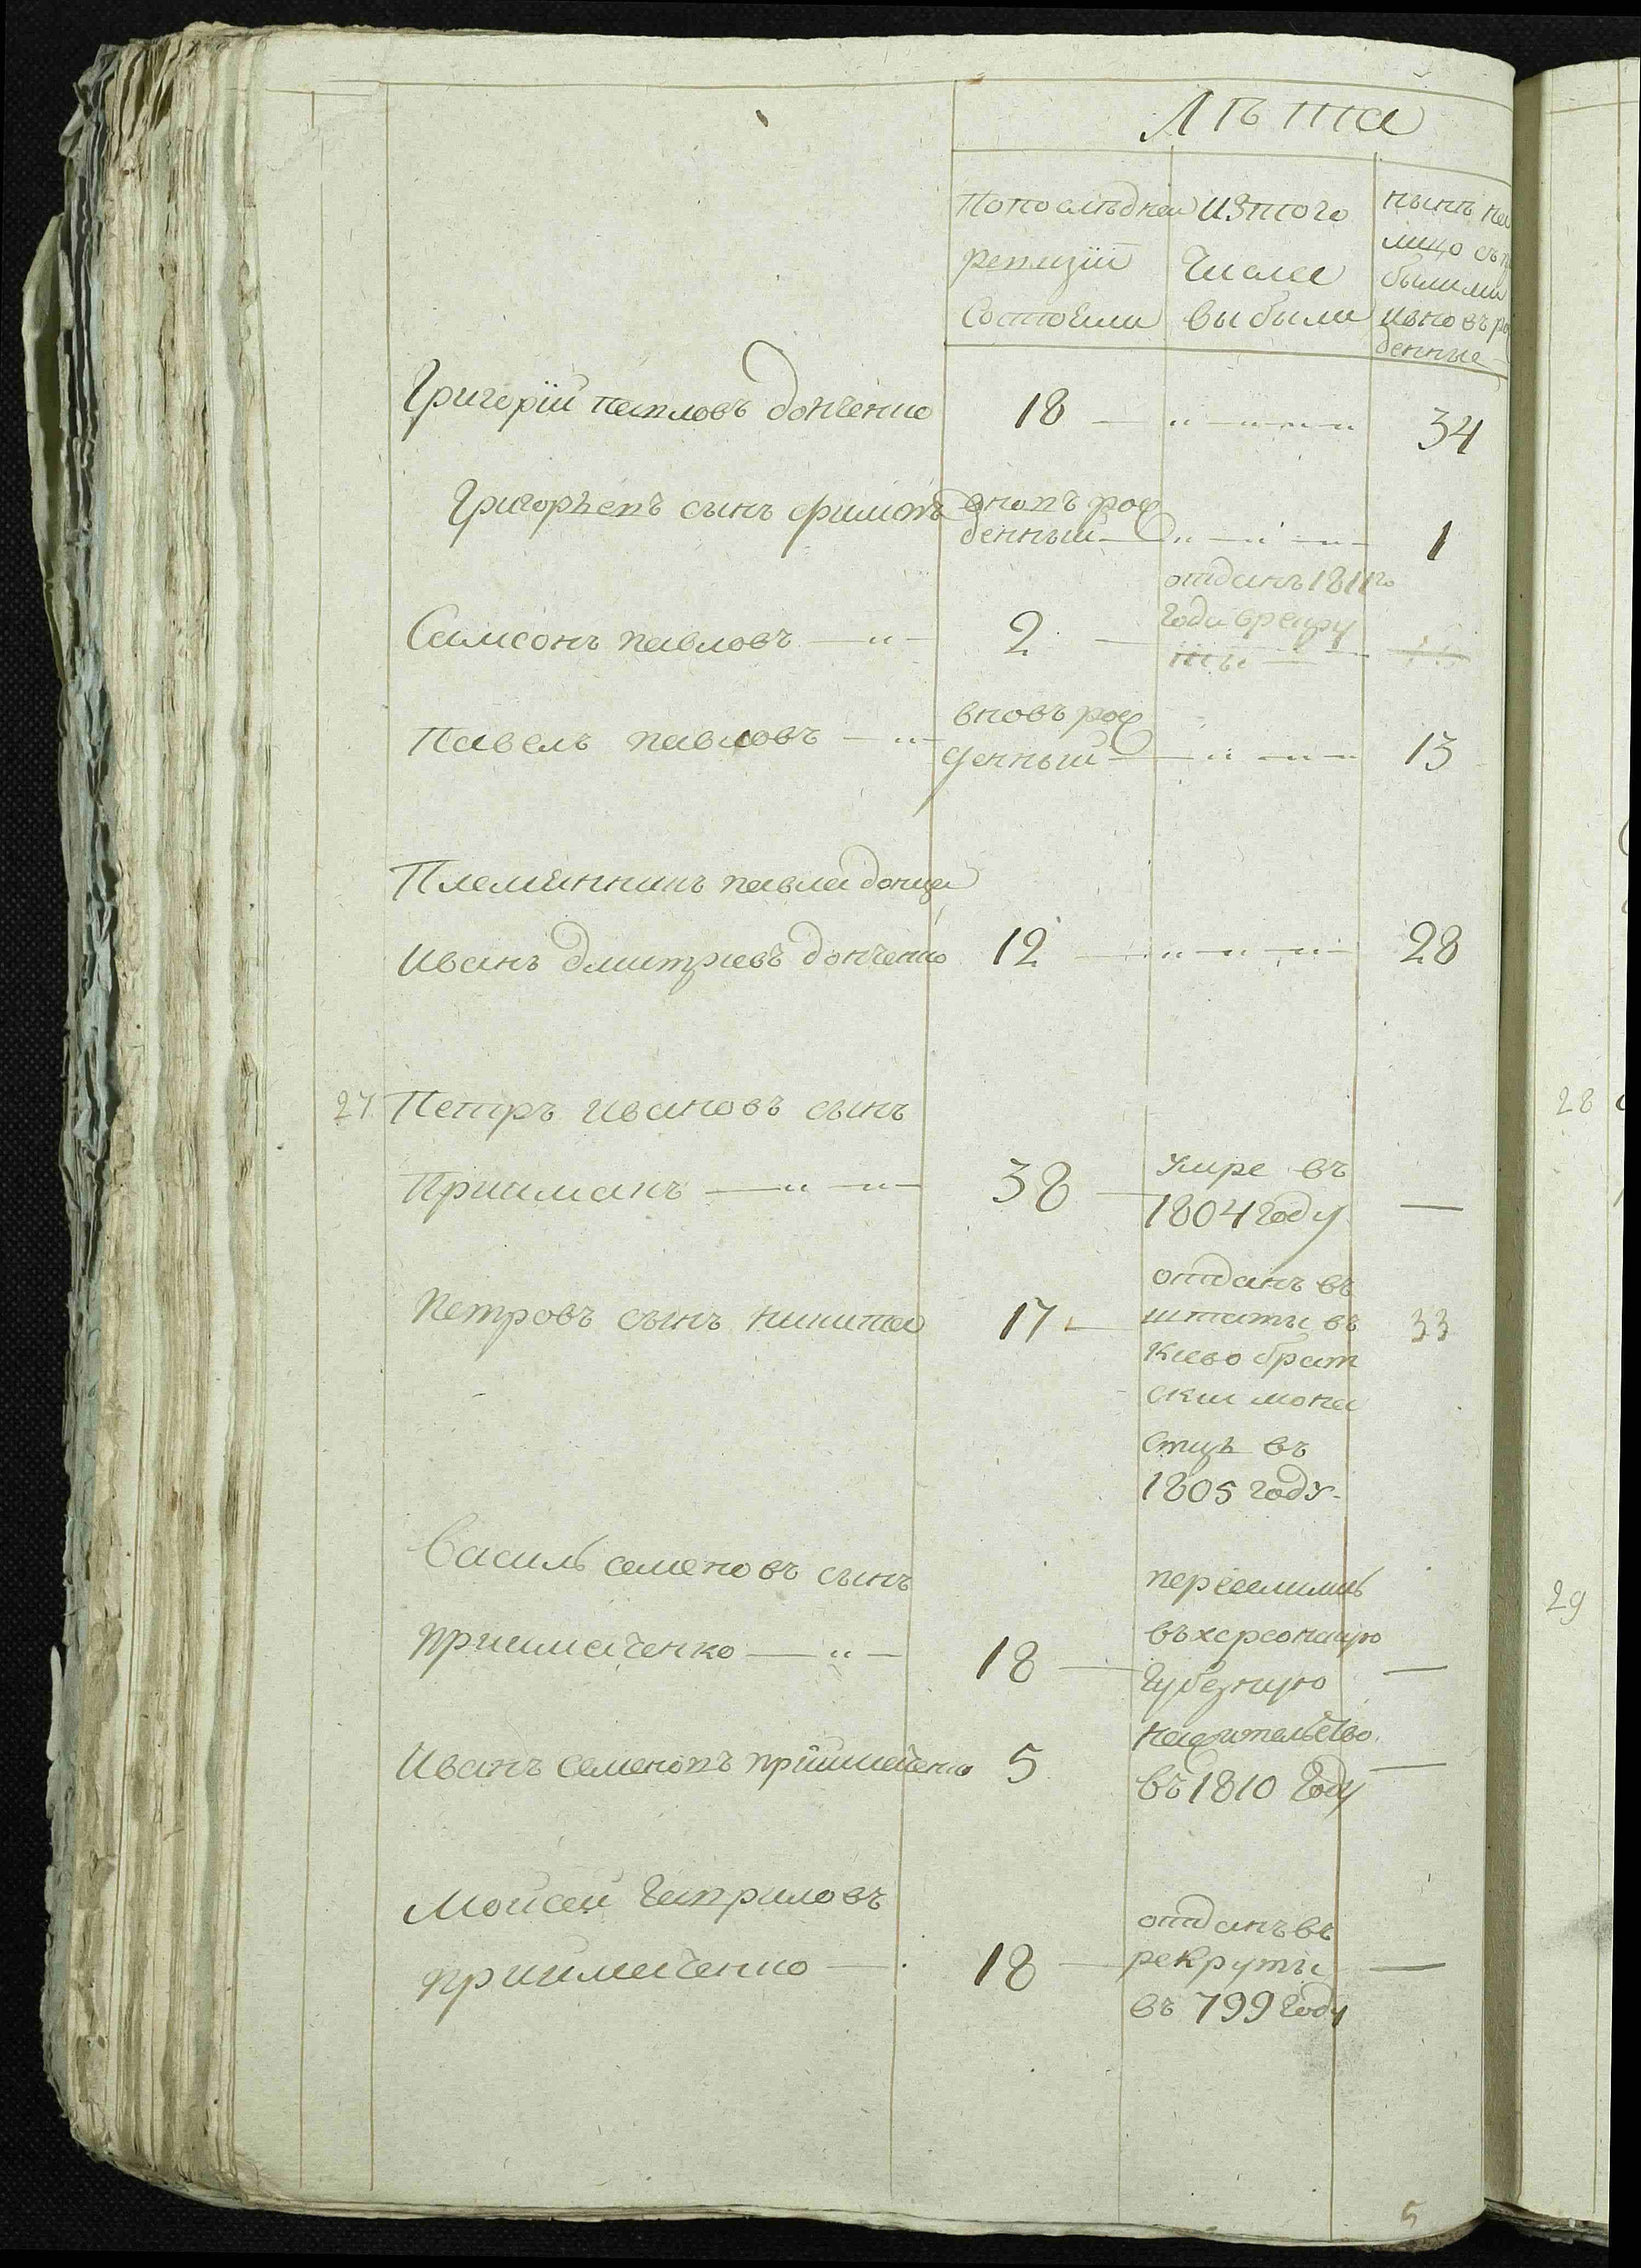 Лѣта
По последней
ревизіи
Состояли
Изтого
Числа
выбыли
нынѣ на
лицо съ п
былыми
и вновь ро
денные
Григорій павловъ донченко 18 34
Григорьевъ сынъ филипъ вновъ рож
денный 1
Самсонъ павловъ 2 отданъ 1811го
года в рекру
ты
Павелъ павловъ вновъ рож
денный 13
Племянникъ павла донца
Иванъ дмитріевъ донченко 12 28
27 Петръ ивановъ сынъ
Приимакъ 38 умре въ
1804 году
Петровъ сынъ никита 17 отданъ въ 33
штаты въ
Киево брат
ски мона
стирь въ
1805 году
Василь семеновъ сынъ
приимаченко 18 переселились
въ херсонскую
Губернию
Иванъ семеновъ приимаченко 5 на жительство
въ 1810 Году
Моисей Гавриловъ
приимаченко 18 отданъ въ
рекруты
въ 799 Году
5
28
29